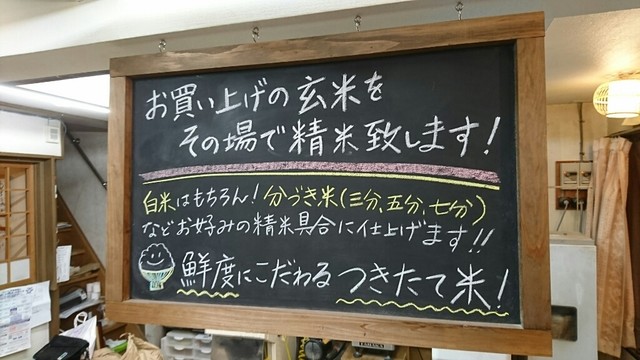 お買い上げの玄米を
その場で精米致します!
白米はもちろん!分づき米(三分、五分、七分)
などお好みの精米具合に仕上げます!!
鮮度にこだわるつきたて米!